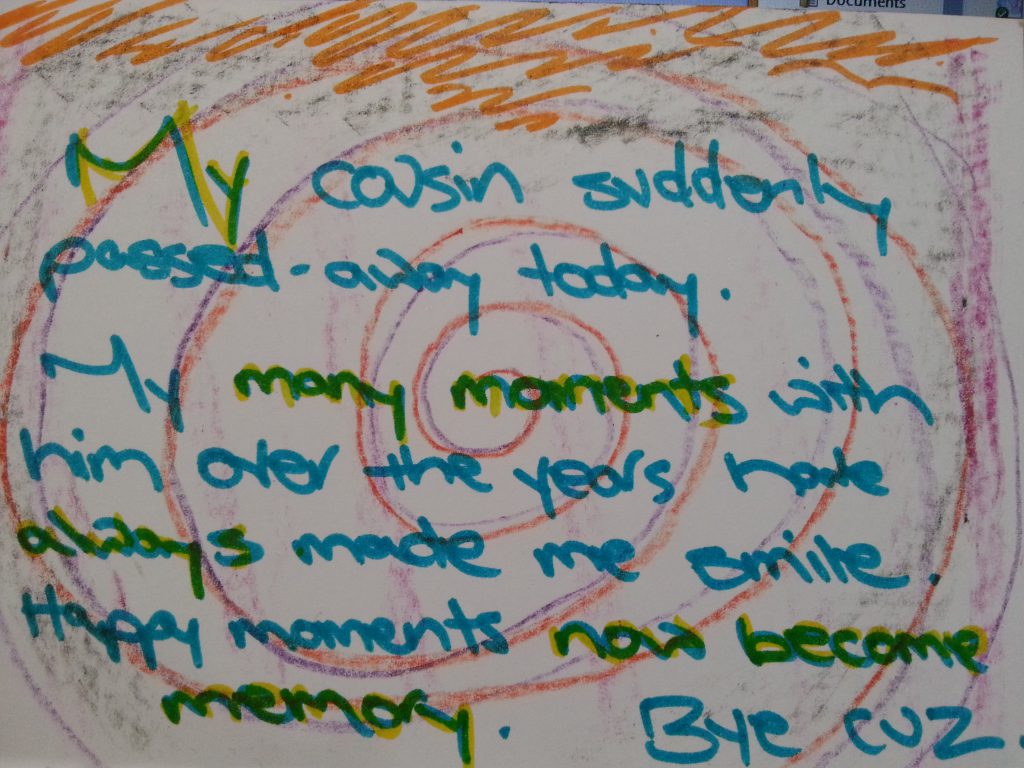 Documents
My cousin suddenly
passed-away today.
My many moments with
him over the years have
always made me smile.
Happy moments now become
memory. Bye cuz.